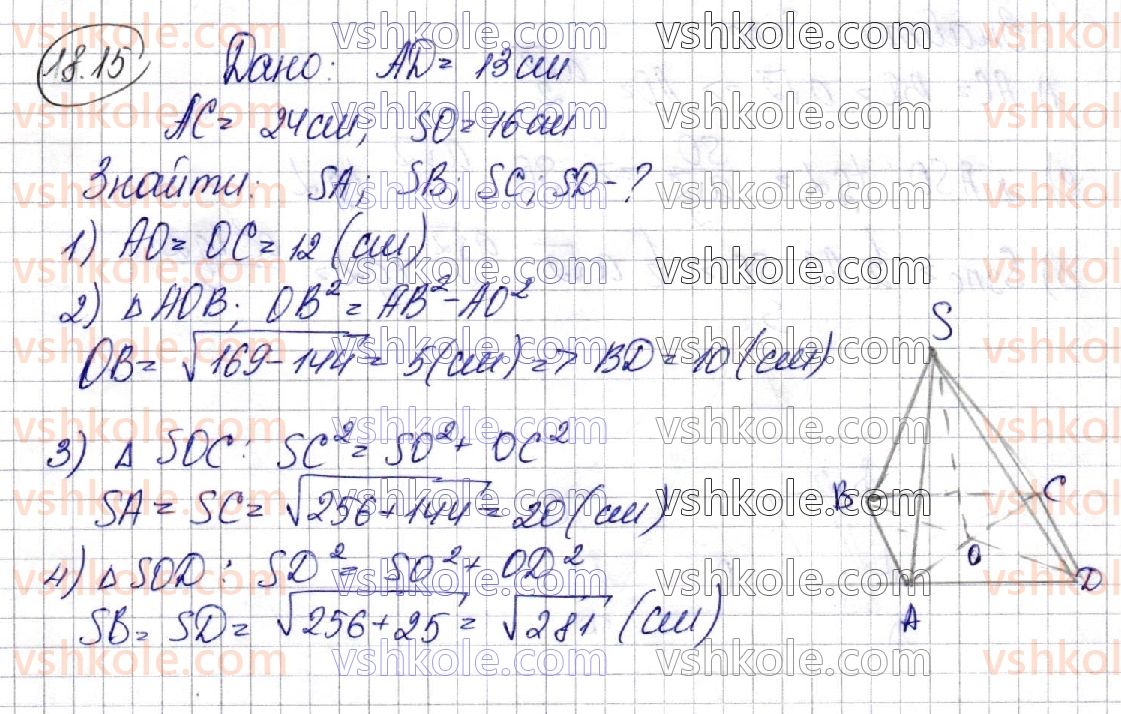 18.15 Дано: AD = 13 см
AC = 24 см, SO = 16 см
Знайти: SA; SB; SC; SD - ?
1) AO = OC = 12 (см)
2) △ AOB; OB² = AB² - AO²
OB = √169-144 = 5 (см) => BD = 10 (см)
3) △ SOC: SC² = SO² + OC²
SA = SC = √256+144 = 20 (см)
4) △ SOD: SD² = SO² + OD²
SB = SD = √256+25 = √281 (см)
S
B
C
O
D
A
vshkole.com